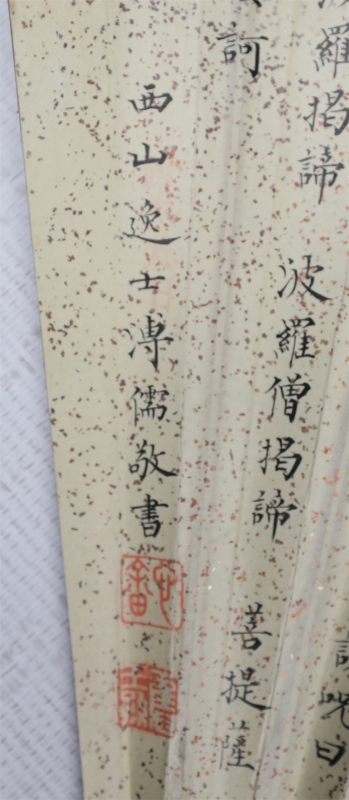 說咒曰
波羅揭諦
波羅僧揭諦
菩提薩
訶
西山逸士溥儒敬書
心畬